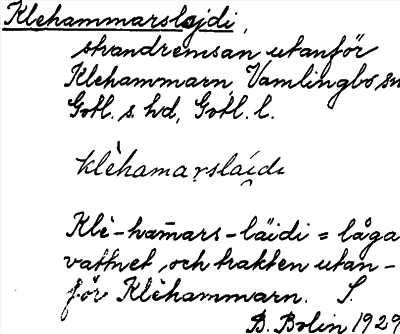 Klehammarslajdi,
strandremsan utanför
Klehammarn, Vamlingbo sn
Gotl. s. hd, Gotl. l.
klèhamaṛslaídi
Klè-ham̄ars-läidi = låga
vattnet, och trakten utan-
för Klèhammarn. S.
B. Bolin 1929